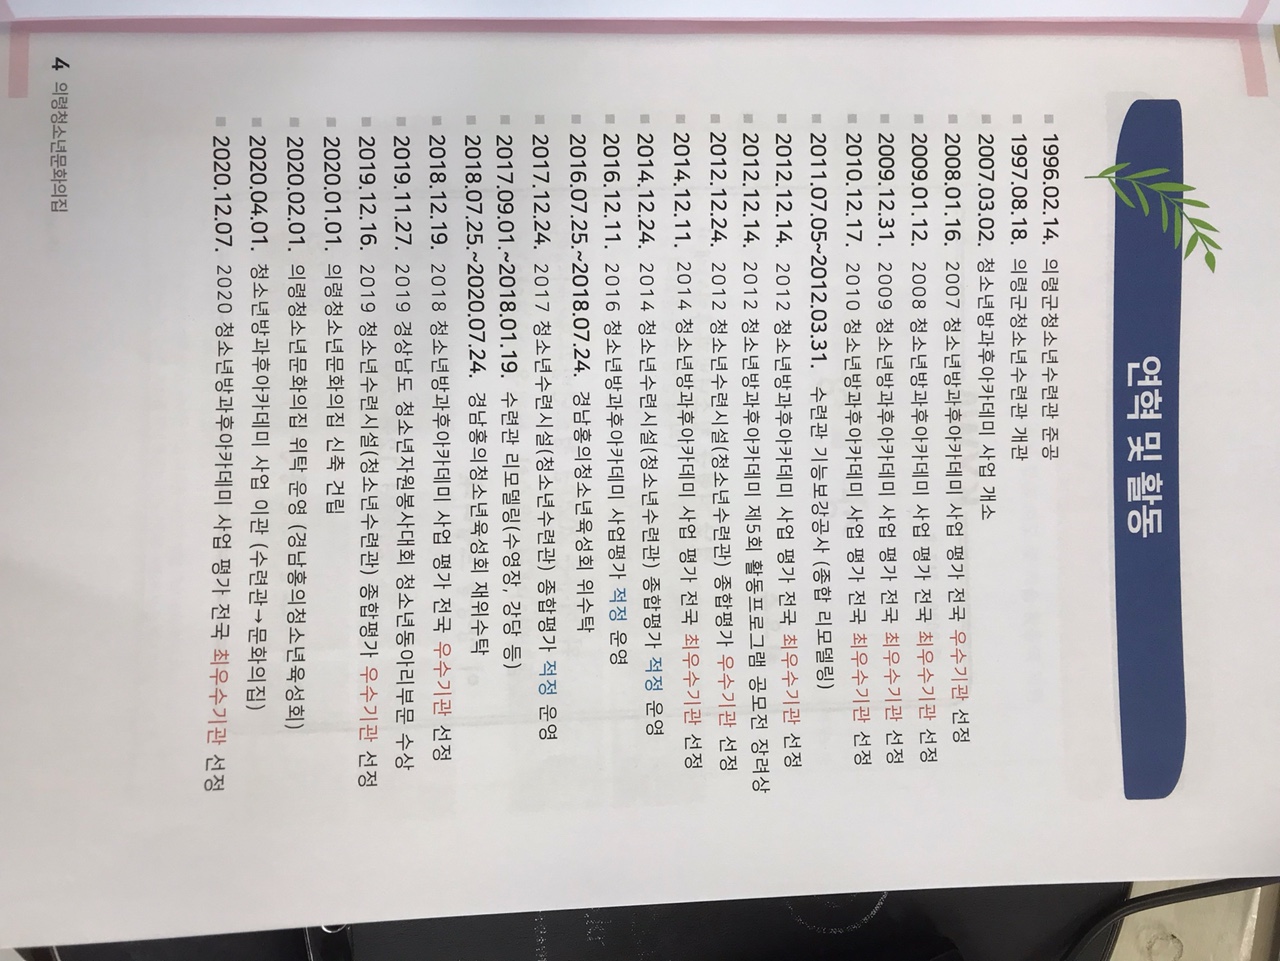 연혁 및 활동
1996.02.14. 의령군청소년수련관 준공
1997.08.18. 의령군청소년수련관 개관
2007.03.02. 청소년방과후아카데미 사업 개소
2008.01.16. 2007 청소년방과후아카데미 사업 평가 전국 우수기관 선정
2009.01.12. 2008 청소년방과후아카데미 사업 평가 전국 최우수기관 선정
2009.12.31. 2009 청소년방과후아카데미 사업 평가 전국 최우수기관 선정
2010.12.17. 2010 청소년방과후아카데미 사업 평가 전국 최우수기관 선정
2011.07.05~2012.03.31. 수련관 기능보강공사 (종합 리모델링)
2012.12.14. 2012 청소년방과후아카데미 사업 평가 전국 최우수기관 선정
2012.12.14. 2012 청소년방과후아카데미 제5회 활동프로그램 공모전 장려상
2012.12.24. 2012 청소년수련시설(청소년수련관) 종합평가 우수기관 선정
2014.12.11. 2014 청소년방과후아카데미 사업 평가 전국 최우수기관 선정
2014.12.24. 2014 청소년수련시설(청소년수련관) 종합평가 적정 운영
2016.12.11. 2016 청소년방과후아카데미 사업평가 적정 운영
2016.07.25.~2018.07.24. 경남흥의청소년육성회 위수탁
2017.12.24. 2017 청소년수련시설(청소년수련관) 종합평가 적정 운영
2017.09.01.~2018.01.19. 수련관 리모델링(수영장, 강당 등)
2018.07.25.~2020.07.24. 경남흥의청소년육성회 재위수탁
2018.12.19. 2018 청소년방과후아카데미 사업 평가 전국 우수기관 선정
2019.11.27. 2019 경상남도 청소년자원봉사대회 청소년동아리부문 수상
2019.12.16. 2019 청소년수련시설(청소년수련관) 종합평가 우수기관 선정
2020.01.01. 의령청소년문화의집 신축 건립
2020.02.01. 의령청소년문화의집 위탁 운영 (경남흥의청소년육성회)
2020.04.01. 청소년방과후아카데미 사업 이관 (수련관→문화의집)
2020.12.07. 2020 청소년방과후아카데미 사업 평가 전국 최우수기관 선정
4 의령청소년문화의집